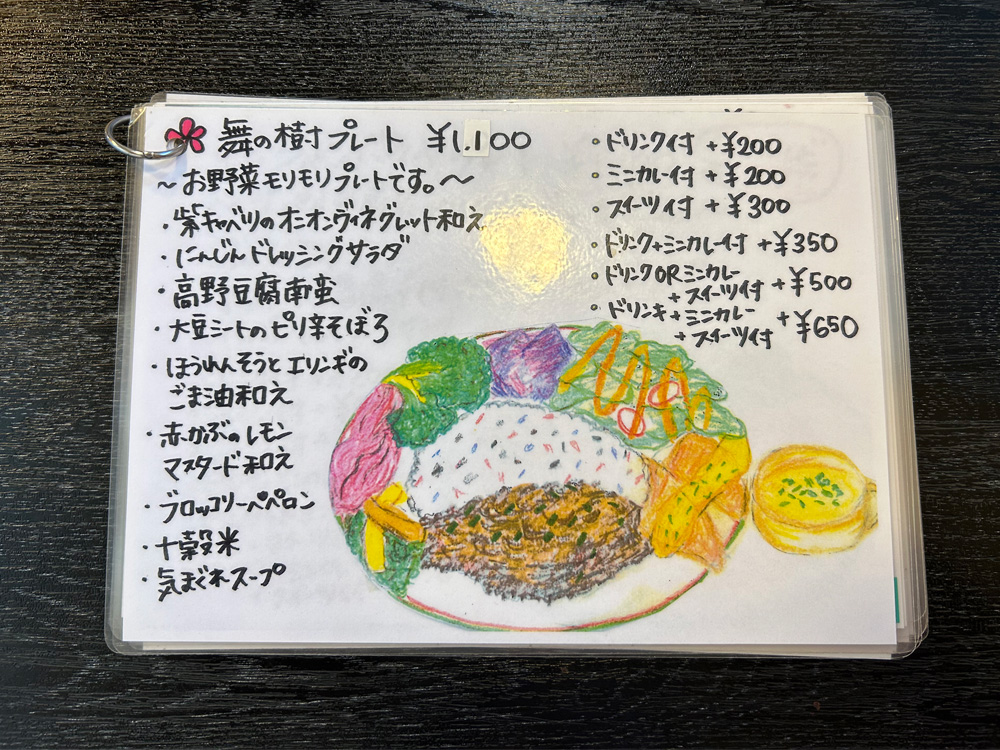 舞の樹プレート ¥1,100
～お野菜モリモリプレートです。～
・紫キャベツのオニオンヴィネグレット和え
・にんじんドレッシングサラダ
・高野豆腐南蛮
・大豆ミートのピリ辛そぼろ
・ほうれんそうとエリンギの
ごま油和え
・赤かぶのレモン
マスタード和え
・ブロッコリーペペロン
・十穀米
・気まぐれスープ
。ドリンク付 +¥200
。ミニカレー付 +¥200
。スイーツ付 +¥300
。ドリンク+ミニカレー付 +¥350
。ドリンクORミニカレー
+スイーツ付 +¥500
。ドリンク+ミニカレー
+スイーツ付 +¥650